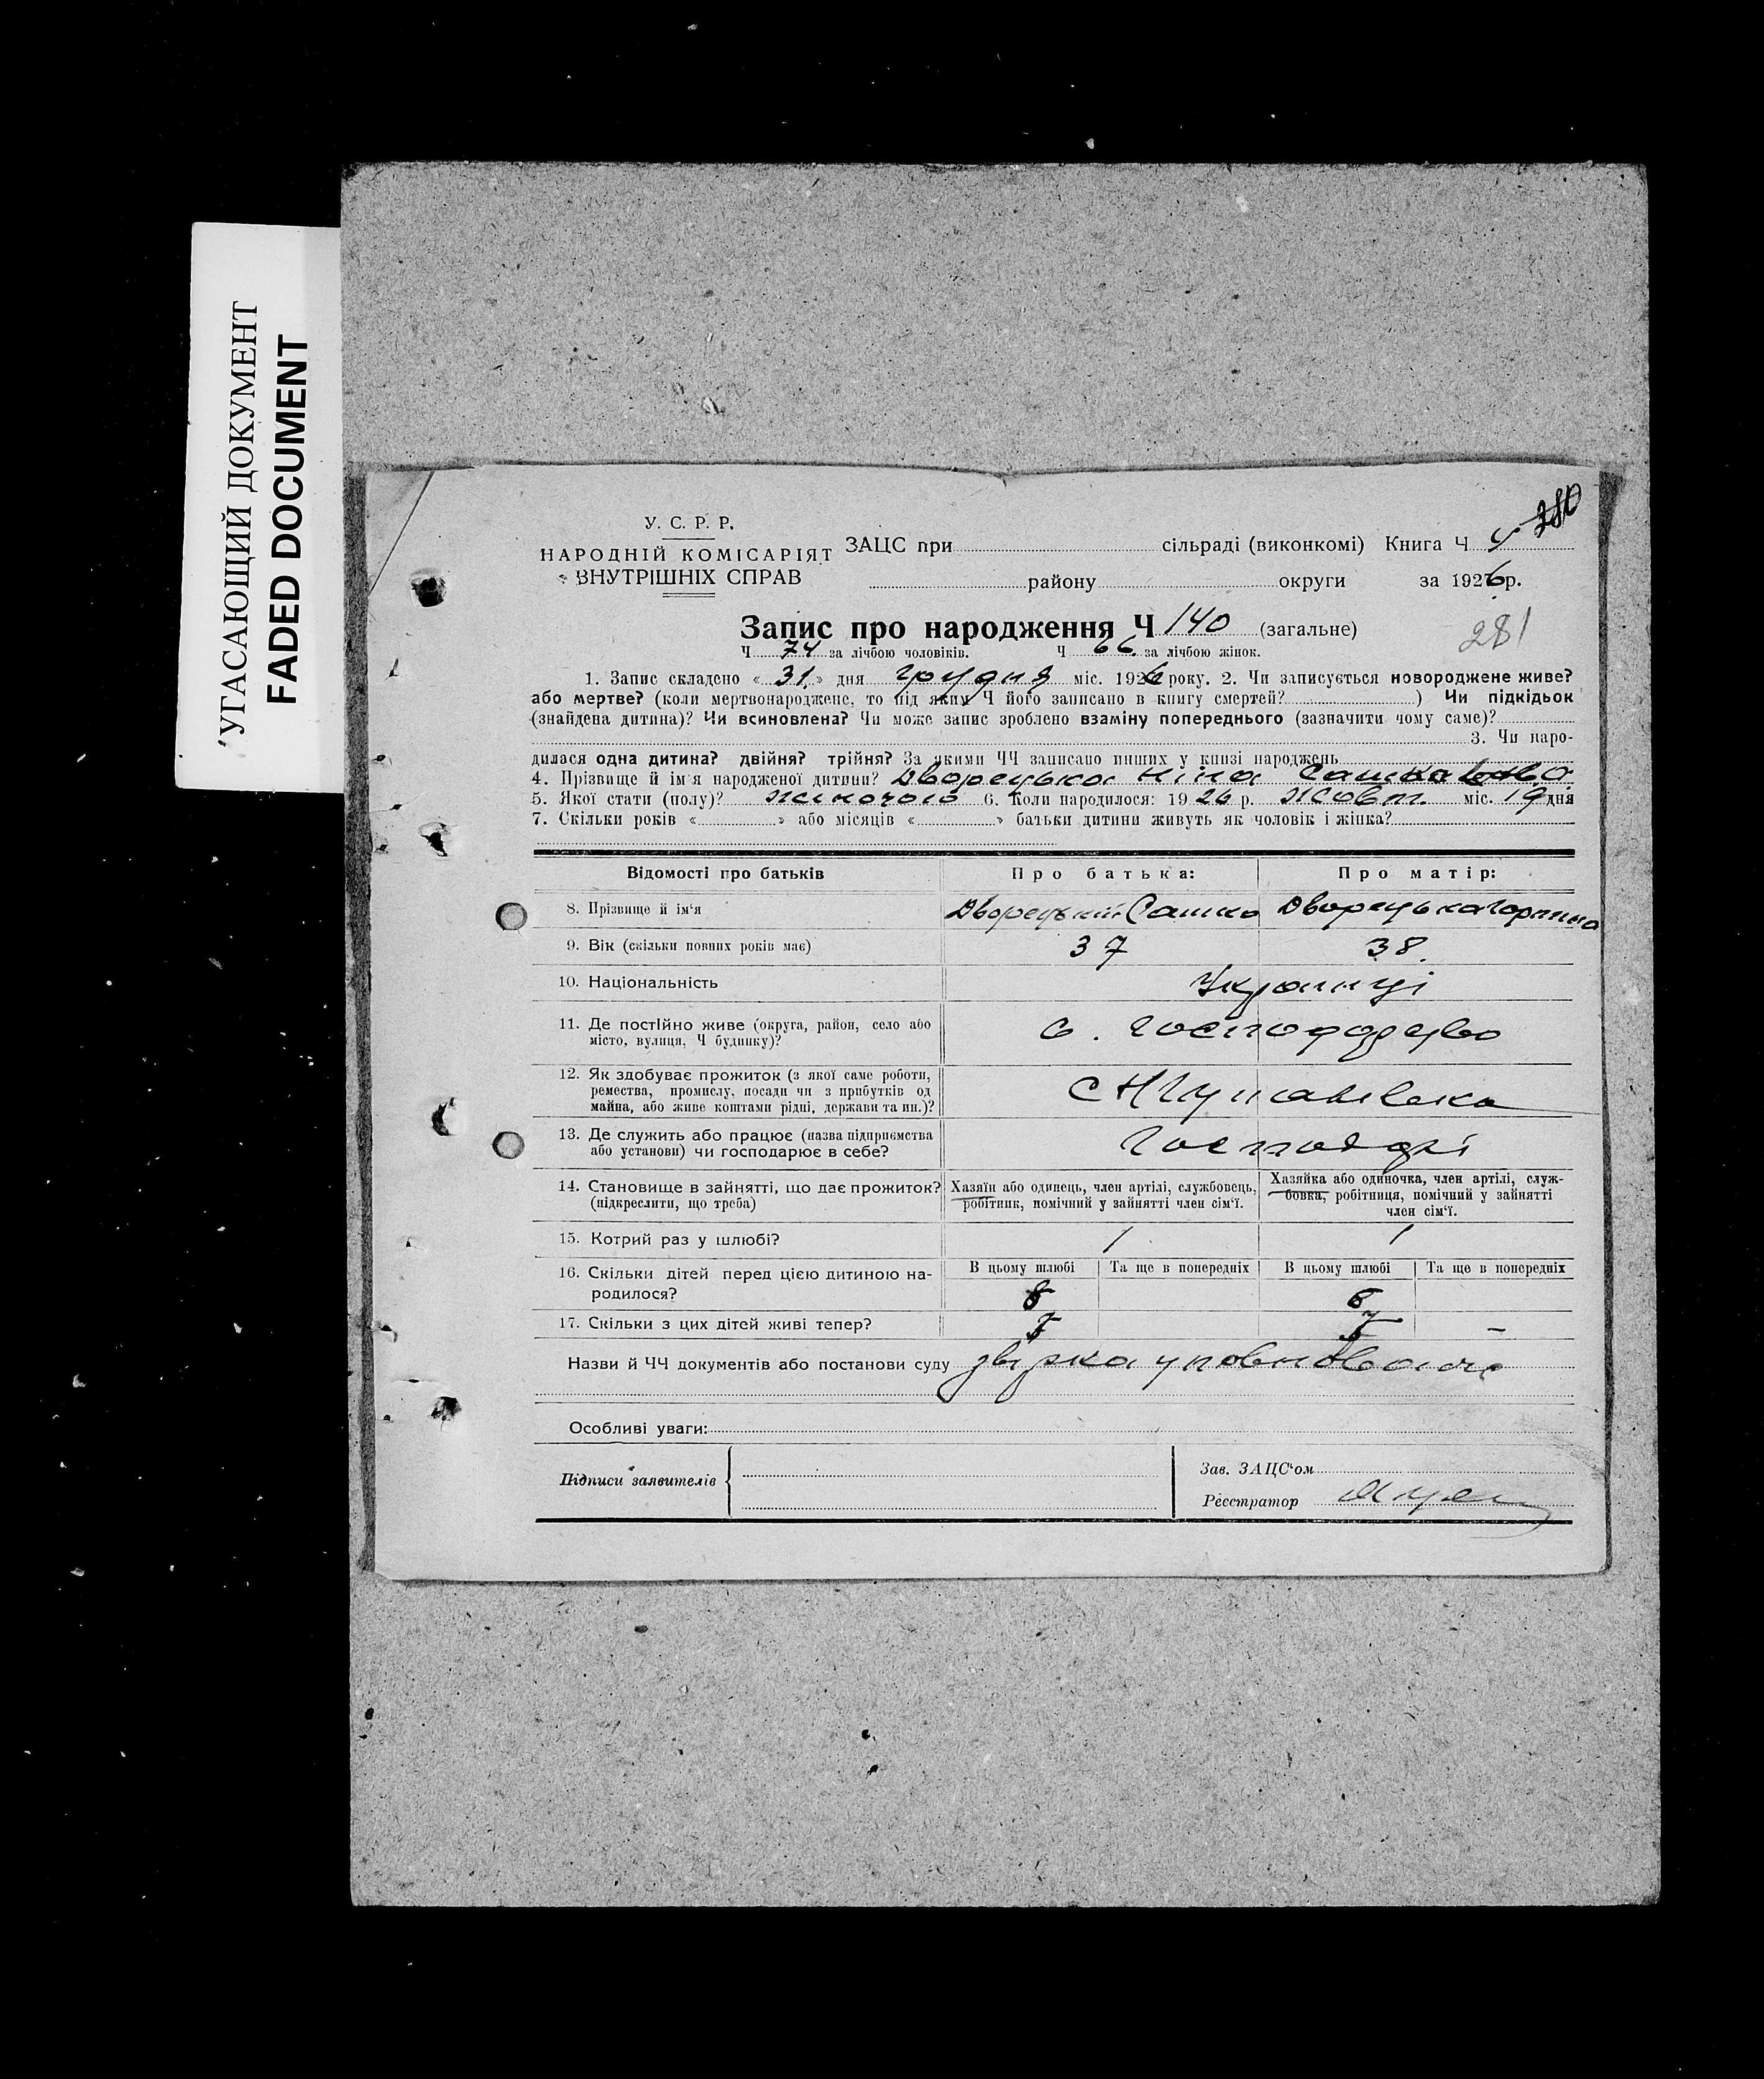 УГАСАЮЩИЙ ДОКУМЕНТ
FADED DOCUMENT
380
У. С. Р. Р.
НАРОДНІЙ КОМІСАРІЯТ
ВНУТРІШНІХ СПРАВ
ЗАЦС при сільраді (виконкомі) Книга Ч
району округи за 1926 р.
Запис про народження Ч 140 (загальне)
281
Ч 74 за лічбою чоловіків. Ч 66 за лічбою жінок.
1. Запис складено « 31 » дня грудня міс. 1926 року. 2. Чи записується новороджене живе?
або мертве? (коли мертвонароджене, то під яким Ч його записано в книгу смертей? ) Чи підкідьок
(знайдена дитина)? Чи всиновлена? Чи може запис зроблено взаміну попереднього (зазначити чому саме)?
3. Чи наро-
дилася одна дитина? двійня? трійня? За якими ЧЧ записано инших у книзі народжень
4. Прізвище й ім'я народженої дитини? Дворецька Ніна
5. Якої стати (полу)? жіночого 6. Коли народилося: 1926 р. жовт. міс. 19 дня
7. Скільки років « » або місяців « » батьки дитини живуть як чоловік і жінка?
Відомості про батьків Про батька: Про матір:
8. Прізвище й ім'я Дворецький Сашко Дворецька Горпина
9. Вік (скільки повних років має) 37 38.
10. Національність Українці
11. Де постійно живе (округа, район, село або
місто, вулиця, Ч будинку)?
12. Як здобуває прожиток (з якої саме роботи,
ремества, промислу, посади чи з прибутків од
майна, або живе коштами рідні, держави та ин.)?
13. Де служить або працює (назва підприємства
або установи) чи господарює в себе?
14. Становище в зайнятті, що дає прожиток?
(підкреслити, що треба)
Хазяїн або одинець, член артілі, службовець,
робітник, помічний у зайнятті член сім'ї.
Хазяйка або одиночка, член артілі, служ-
бовка, робітниця, помічний у зайнятті
член сім'ї.
15. Котрий раз у шлюбі? 1 1
16. Скільки дітей перед цією дитиною на-
родилося?
В цьому шлюбі Та ще в попередніх В цьому шлюбі Та ще в попередніх
8
17. Скільки з цих дітей живі тепер? –
Назви й ЧЧ документів або постанови суду
Особливі уваги:
Підписи заявителів
Зав. ЗАЦС'ом
Реєстратор